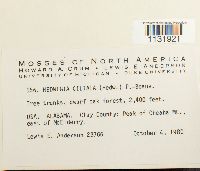 1131921
MOSSES OF NORTH AMERICA
HOWARD A. CRUM - LEWIS E. ANDERSON
UNIVERSITY OF MICHIGAN - DUKE UNIVERSITY
HEDWIGIA CILIATA (Hedw.) P.-Beauv.
Tree trunks, dwarf oak forest, 2,400 feet.
USA. ALABAMA. Clay County: Peak of Cheaha Mt.,
east of
Lewis E. Anderson 23766 October 4, 1980